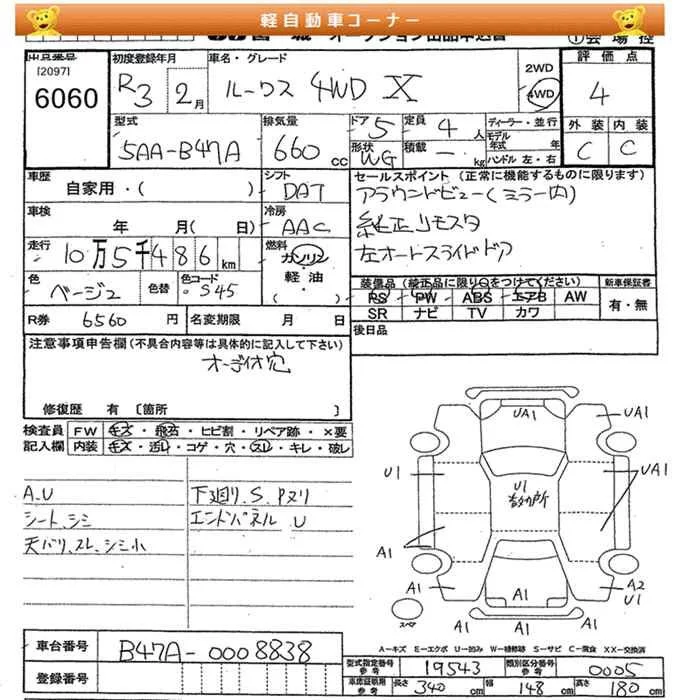 軽自動車コーナー
出品番号
[2097]
6060
初度登録年月
R3 2月
車名・グレード
ルークス 4WD X
2WD
4WD
評価点
4
型式
5AA-B47A
排気量
660 cc
ドア 5
定員 4 人
形状 WG
積載 - kg
ディーラー・並行
モデル年式 年
ハンドル 左・右
外装 内装
C C
車歴
自家用・( )
シフト
DAT
セールスポイント (正常に機能するものに限ります)
アラウンドビュー(ミラー内)
純正リモスタ
左オートスライドドア
車検
年 月( 日)
冷房
AAC
走行
10万5千486 km
燃料
ガソリン
軽・油
( )
色
ベージュ
色替
色コード
S45
装備品 (純正品に限り○をつけてください)
新車保証書
PS PW ABS エアB AW
SR ナビ TV カワ
有・無
R券 6560 円
名変期限 月 日
後日品
注意事項申告欄 (不具合内容等は具体的に記入して下さい)
オーディオ穴
修復歴 有 [箇所 ]
検査員 FW キズ・飛石・ヒビ割・リペア跡・×要
記入欄 内装 キズ・汚レ・コゲ・穴・スレ・キレ・破レ
A.U
シート、シミ
天バリ、スレ、シミ小
下廻り、S、Pヌリ
エンドパネル U
UA1
UA1
U1
UA1
U1
A1
A1
A1
A1
A2
U1
A1
A1
A1
スペア
A-キズ E-エクボ U-凹み W-補修跡 S-サビ C-腐食 XX-交換済
車台番号 B47A-0008838
登録番号
型式指定番号 参考 19543
類別区分番号 参考 0005
車庫証明用 参考 長さ 340 cm 幅 148 cm 高さ 180 cm